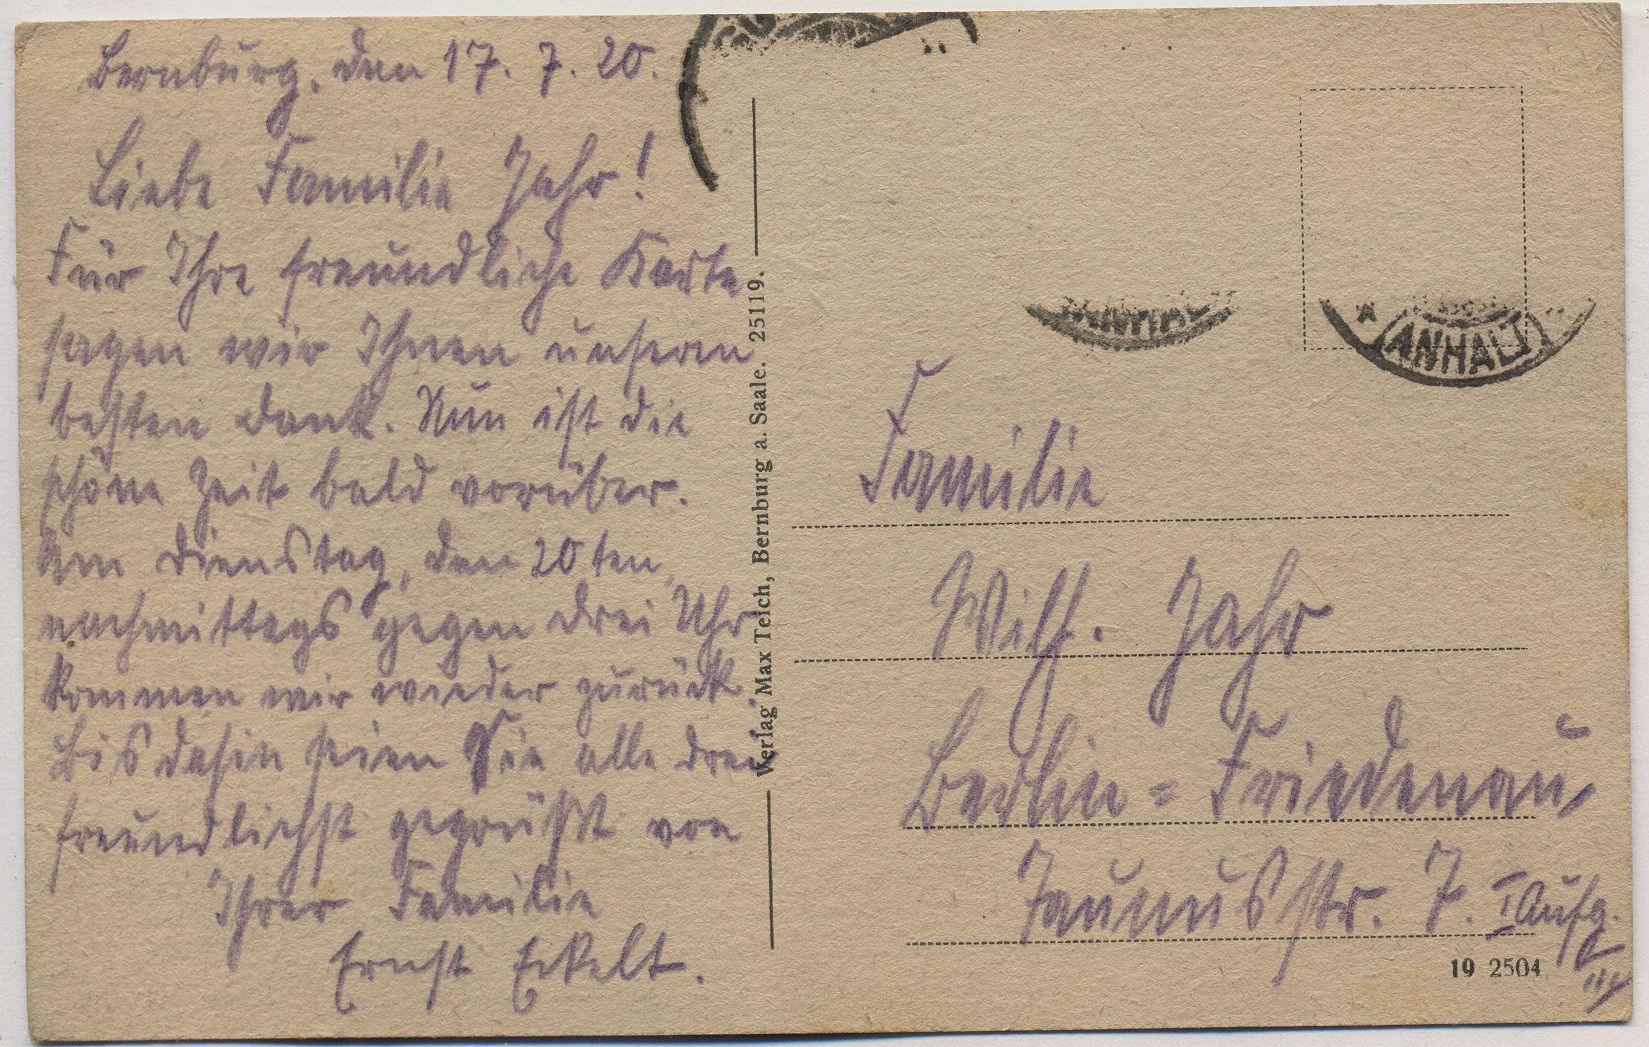 Bernburg, den 17. 7. 20.
Liebe Familie Jahr!
Für Ihre freundliche Karte
sagen wir Ihnen unseren
besten Dank. Nun ist die
schöne Zeit bald vorüber.
Am Dienstag, den 20ten,
nachmittags gegen drei Uhr
kommen wir wieder zurück.
Bis dahin seien Sie alle drei
freundlichst gegrüßt von
Ihrer Familie
Ernst Eckelt.
Verlag Max Teich, Bernburg a. Saale. 25119.
ANHALT
ANHALT
Familie
Wilh. Jahr
Berlin=Friedenau
Taunusstr. 7. I Aufg.
19 2504